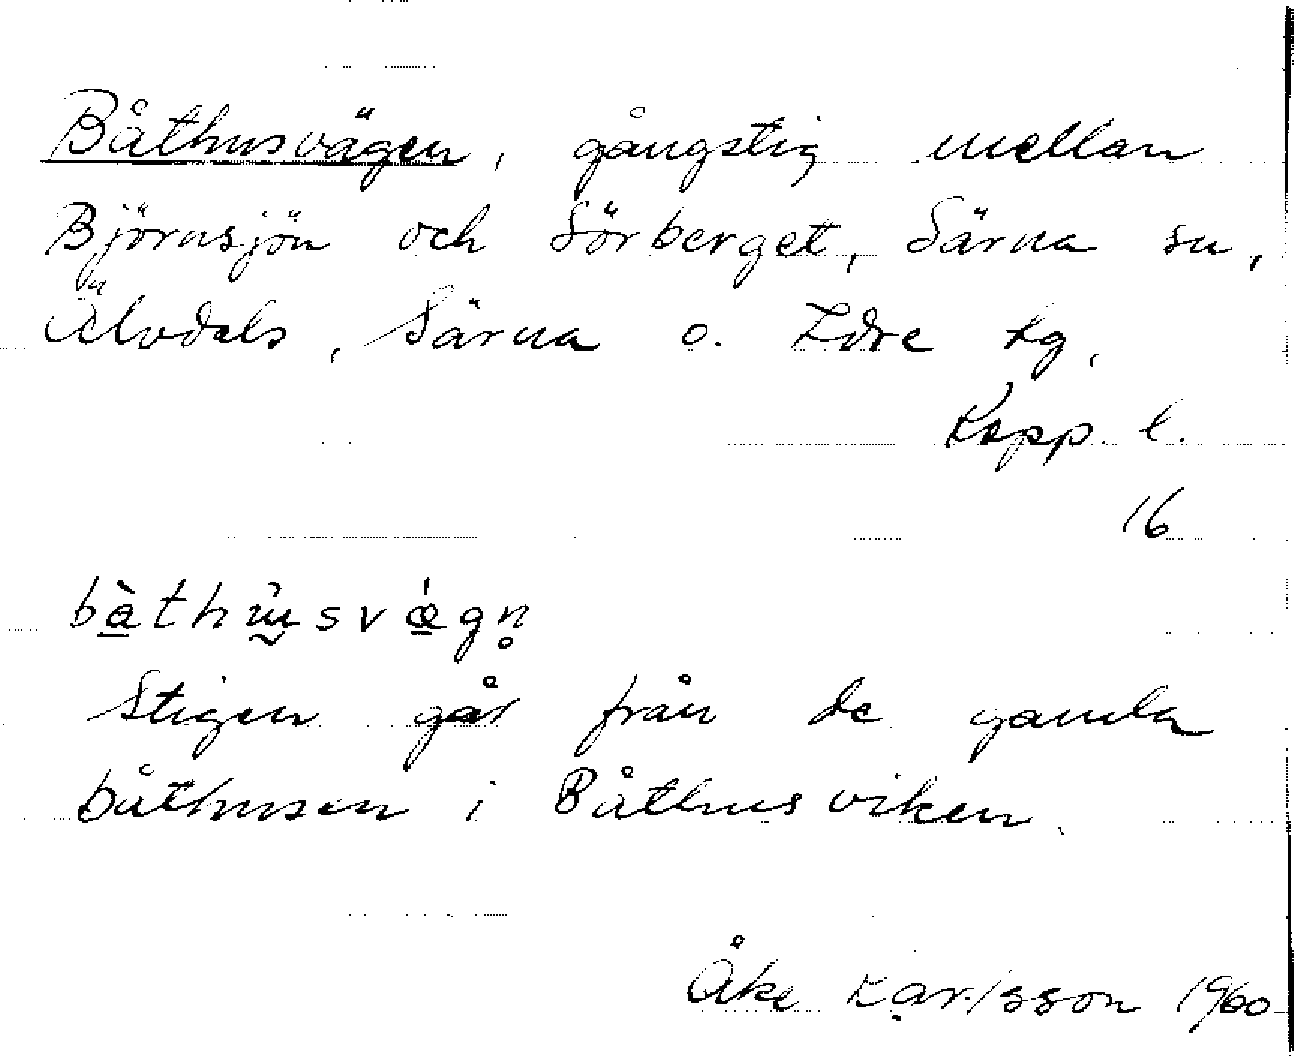 Båthusvägen, gångstig mellan
Björnsjön och Sörberget, Särna sn,
Älvdals, Särna o. Idre tg,
Kopp. l.
16
bà̠thɯ̰̀svǽ̠gn̥
Stigen går från de gamla
båthusen i Båthusviken.
Åke Karlsson 1960